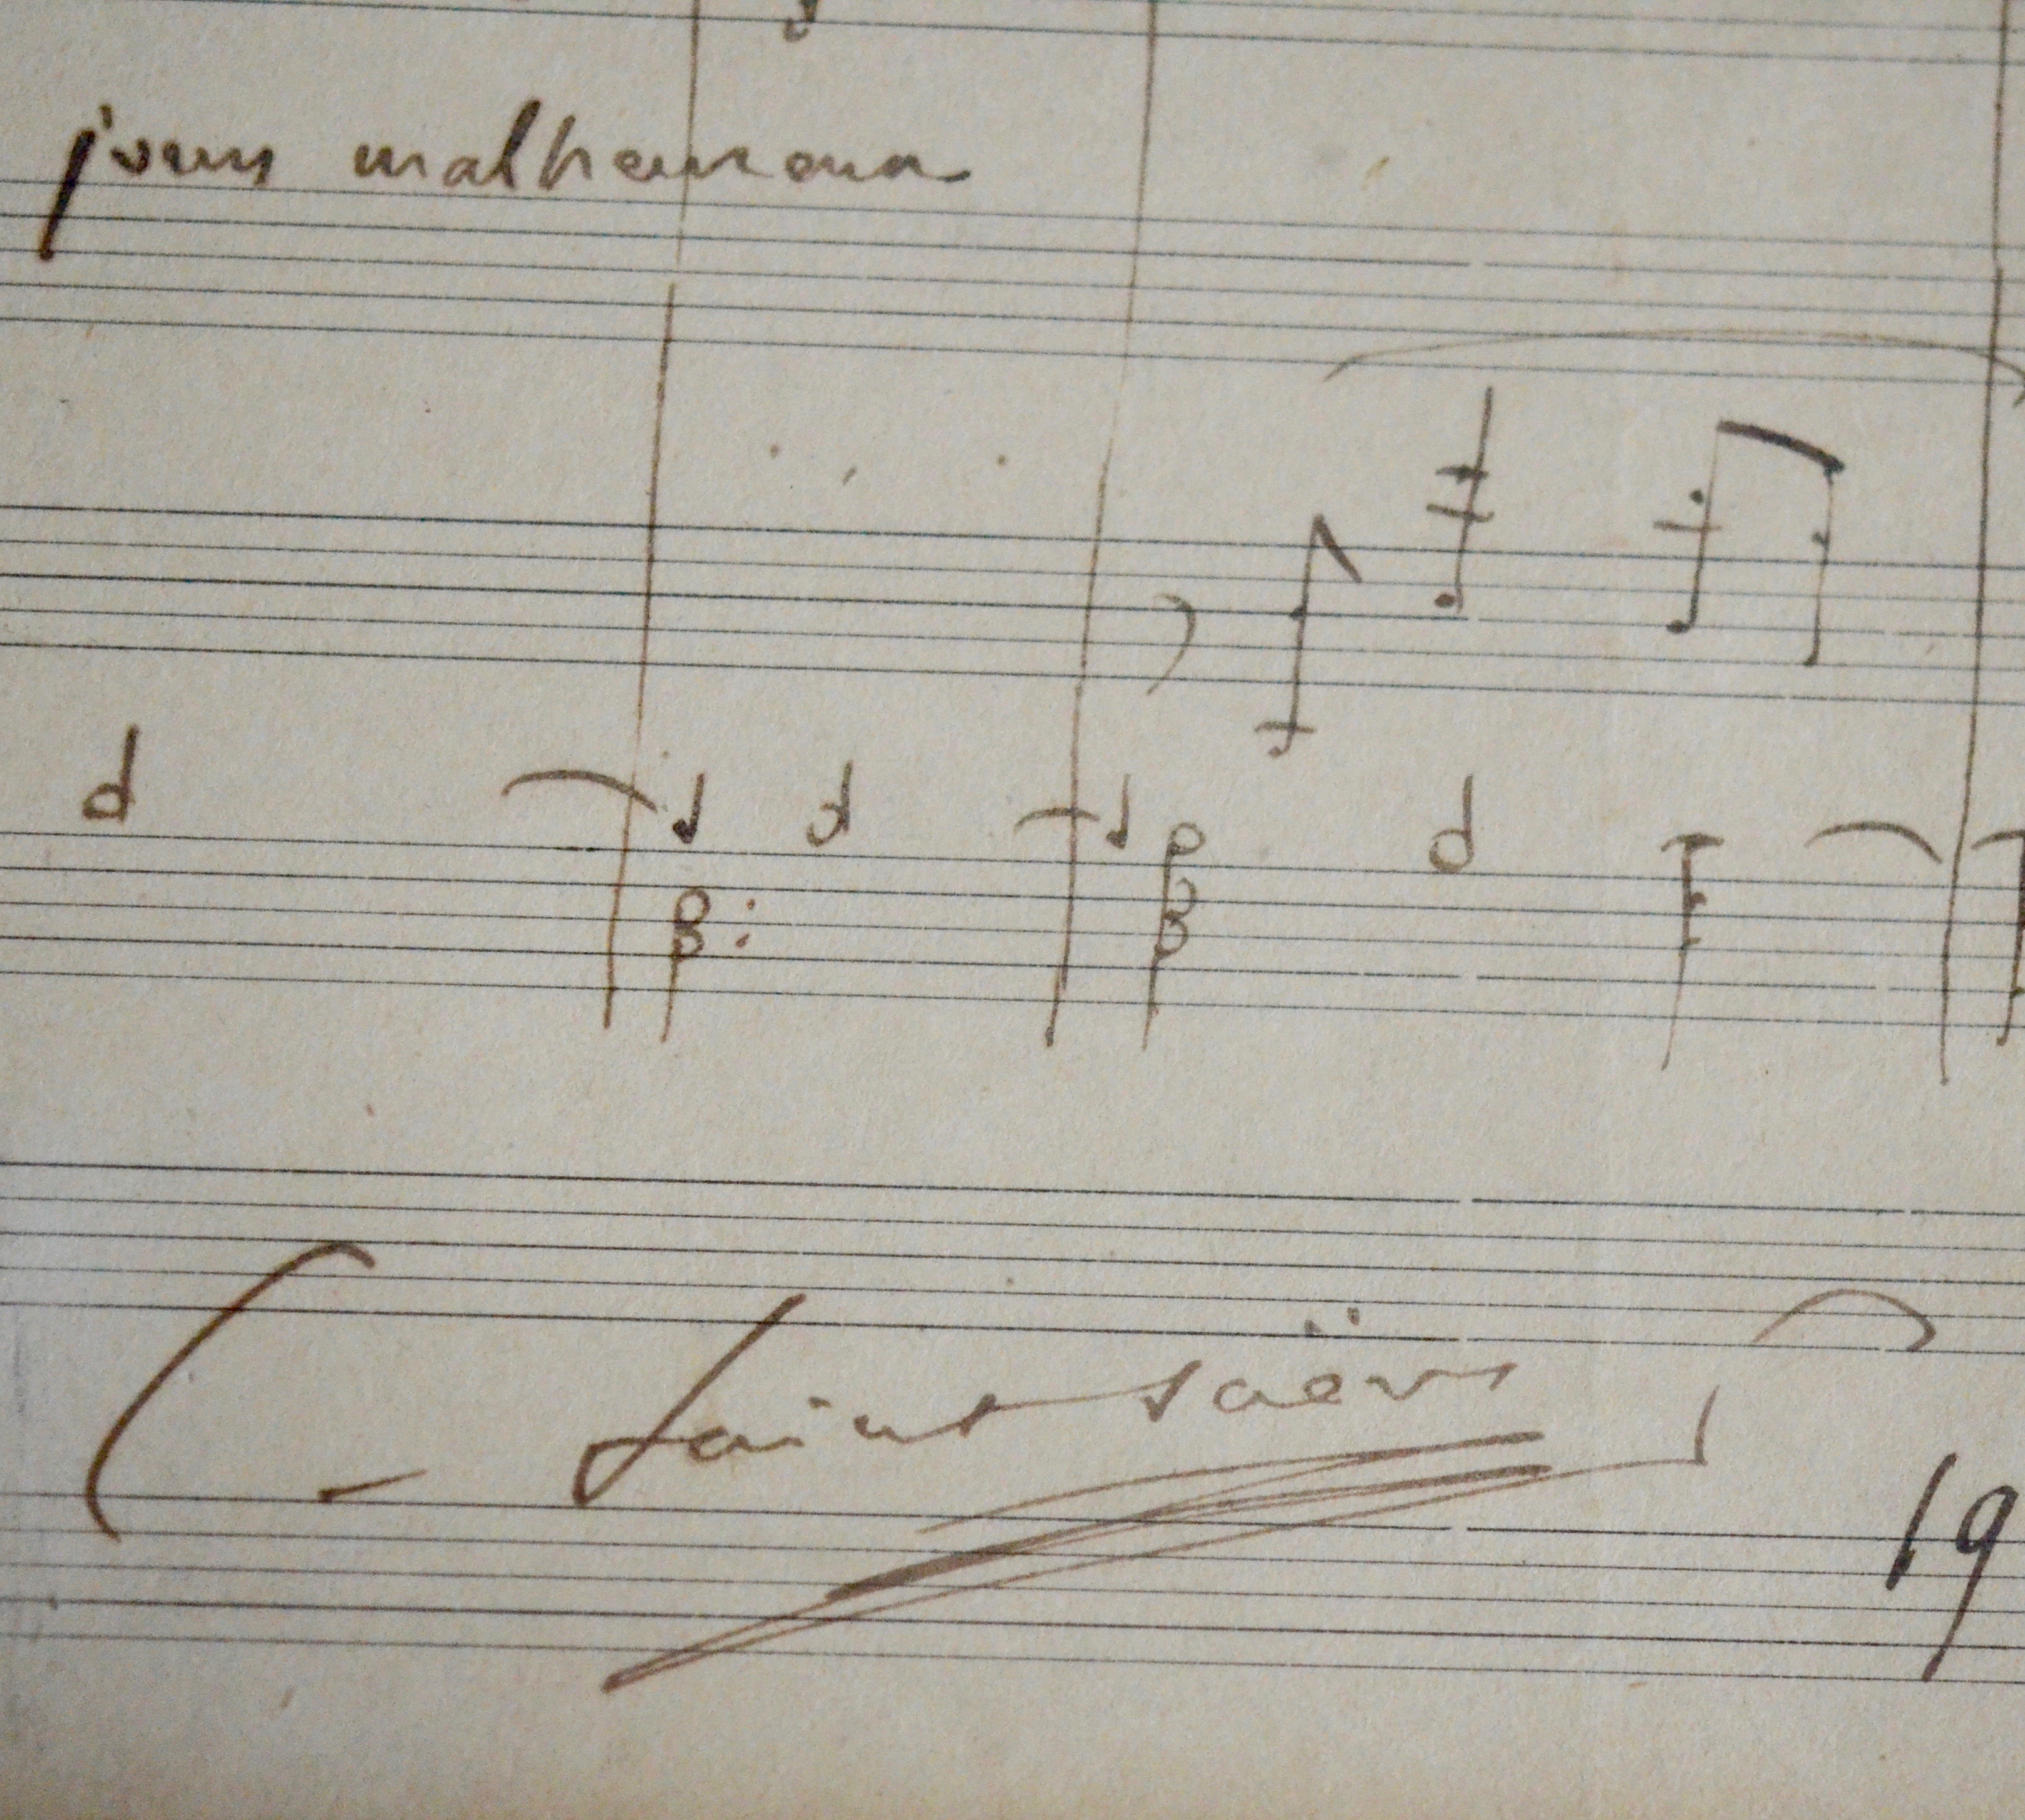 jours malheureux
C. Saint-Saëns
19